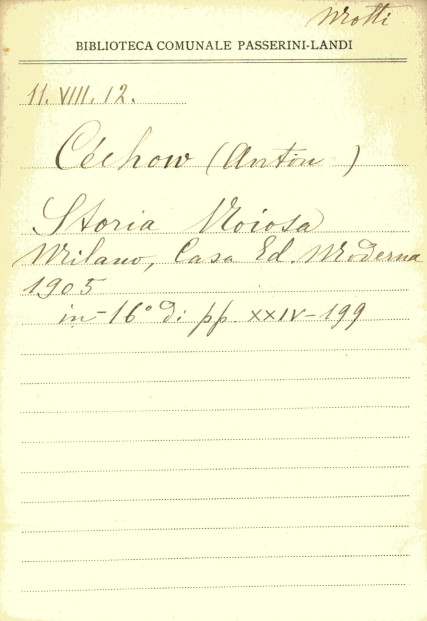 Motti
BIBLIOTECA COMUNALE PASSERINI-LANDI
11. VIII. 12.
Céchow (Anton )
Storia Noiosa
Milano, Casa Ed. Moderna
1905
in-16° di pp. XXIV-199